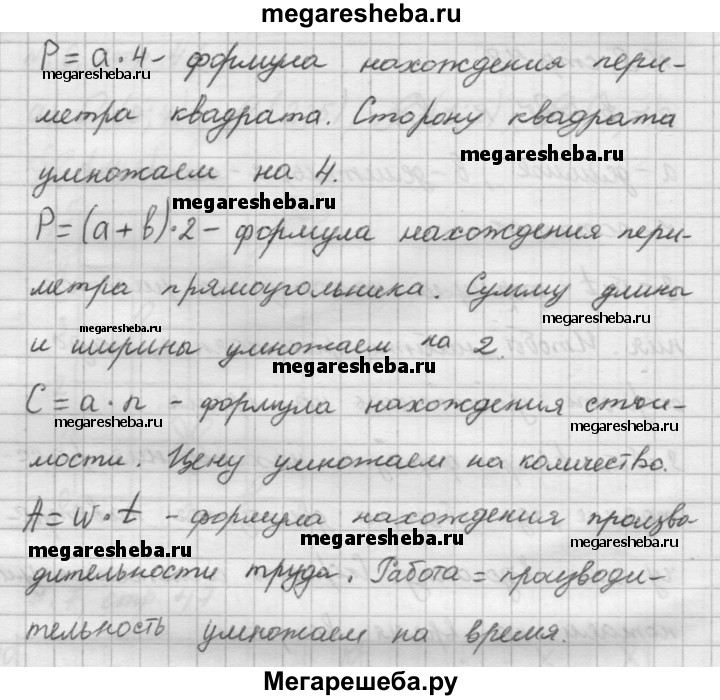 megaresheba.ru
P = a · 4 - формула нахождения пери-
megaresheba.ru
метра квадрата. Сторону квадрата
megaresheba.ru
умножаем на 4.
megaresheba.ru
P = (a + b) · 2 - формула нахождения пери-
метра прямоугольника. Сумму длины
megaresheba.ru
и ширины умножаем на 2.
megaresheba.ru
C = a · n - формула нахождения стои-
megaresheba.ru
megaresheba.ru
мости. Цену умножаем на количество.
A = w · t - формула нахождения произво
megaresheba.ru
megaresheba.ru
дительности труда. Работа = производи-
тельность умножаем на время.
Мегарешеба.ру